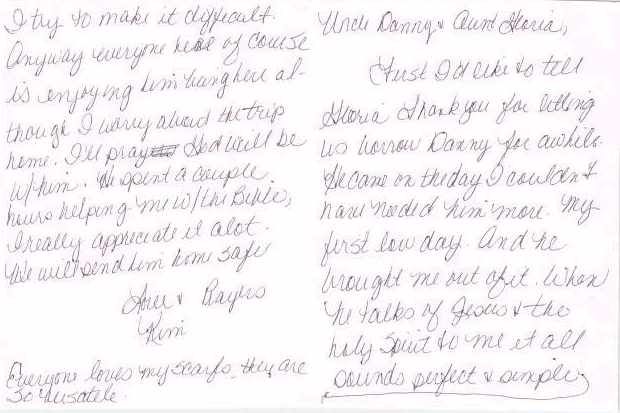 Uncle Danny & Aunt Gloria,
First I'd like to tell
Gloria thank you for letting
us borrow Danny for awhile.
He came on the day I couldn't
have needed him more. My
first low day. And he
brought me out of it. When
he talks of Jesus & the
holy Spirit to me it all
sounds perfect & simple;
I try to make it difficult.
Anyway everyone here of course
is enjoying him being here al-
though I worry about the trip
home. I'll pray God will be
w/him. He spent a couple
hours helping me w/the Bible,
I really appreciate it alot.
We will send him home safe
Love & Prayers
Kim
Everyone loves my scarfs, they are
so versatile.